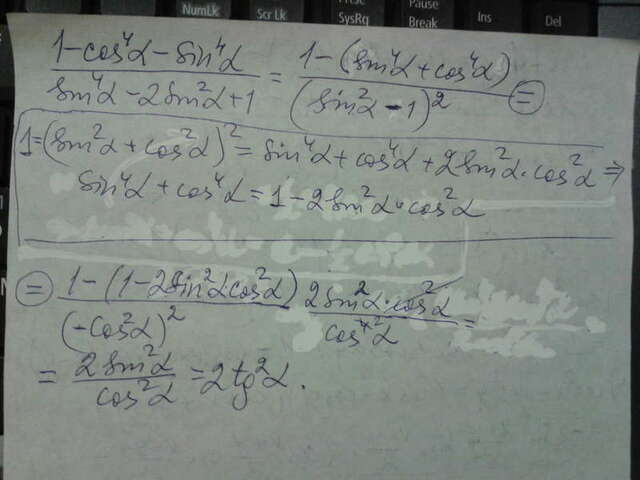 NumLk
Scr Lk
Prtsc
SysRq
Pause
Break
Ins
Del
1-cos⁴α-sin⁴α / sin⁴α-2sin²α+1 = 1-(sin⁴α+cos⁴α) / (sin²α-1)² =
1=(sin²α+cos²α)²=sin⁴α+cos⁴α+2sin²α·cos²α ⇒
sin⁴α+cos⁴α=1-2sin²α·cos²α
= 1-(1-2sin²αcos²α) / (-cos²α)² 2sin²α·cos²α / cos⁴α =
= 2sin²α / cos²α = 2tg²α.